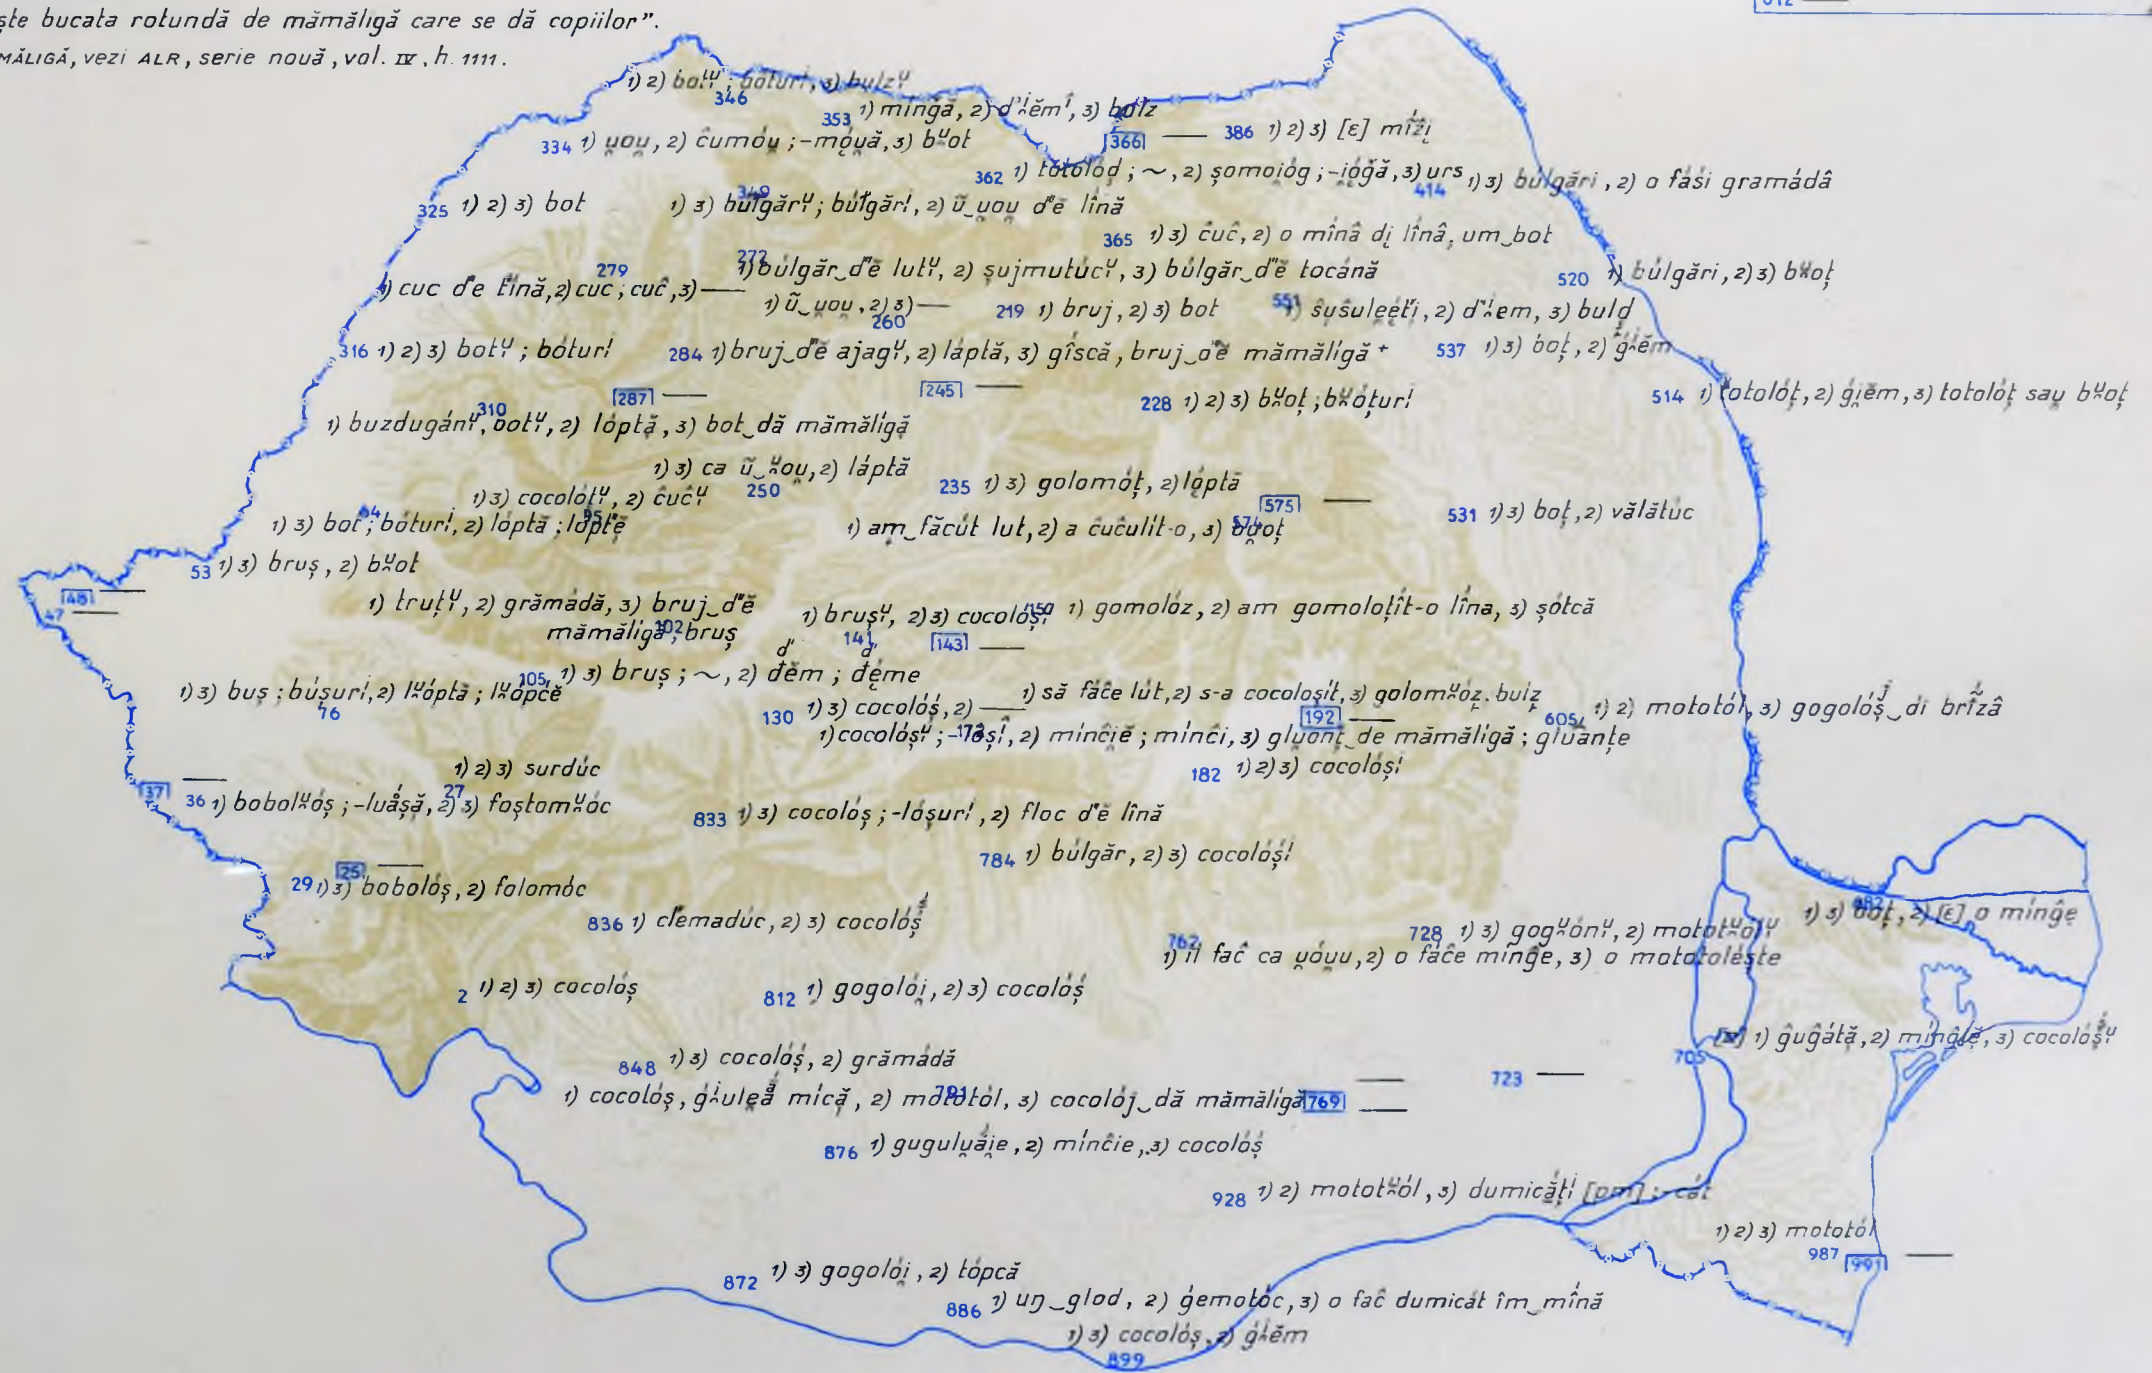 ște bucata rotundă de mămăligă care se dă copiilor”.
MĂLIGĂ, vezi ALR, serie nouă, vol. IV, h. 1111.
346 1) 2) botʸ; bóturĭ, 3) bulzʸ
353 1) mingă, 2) 3) bulz
334 1) u̯ou̯, 2) ĉumóu̯; -mou̯ă, 3) bᵘ̯ot
366 —
386 1) 2) 3) [ε] mižĭ
362 1) totolóḑ; ~, 2) șomoi̯óg; -i̯ógă, 3) urs
414 1) 3) búlgări, 2) o fáși gramádâ
325 1) 2) 3) bot
349 1) 3) búlgărʸ; búlgărĭ, 2) ũ‿u̯ou̯ d'ĕ lînă
365 1) 3) ĉuĉ, 2) o mînâ di̧ lînâ, um‿bot
272 1) búlgăr‿d'ĕ lutʸ, 2) șujmutúcʸ, 3) búlgăr‿d'ĕ tocánă
279 1) cuc d'e tină, 2) cuc; cuĉ, 3) —
520 1) búlgări, 2) 3) bᵘ̯oț
260 1) ũ‿u̯ou̯, 2) 3) —
219 1) bruj, 2) 3) bot
551 1) 2) 3) bulḑ
316 1) 2) 3) botʸ; bóturĭ
284 1) bruj‿d'ĕ ajagʸ, 2) láptă, 3) gîscă, bruj‿d'ĕ mămălígă +
537 1) 3) boț, 2) ǵi̯ĕm
287 —
245 —
228 1) 2) 3) bᵘ̯oț; bᵘ̯óțurĭ
514 1) totolóț, 2) ǵi̯ĕm, 3) totolóț sau̯ bᵘ̯oț
310 1) buzdugánʸ, botʸ, 2) lóptă, 3) bot‿dă mămălígă
250 1) 3) ca ũ‿ᵘ̯ou̯, 2) láptă
235 1) 3) golomóț, 2) lóptă
95 1) 3) cocolóțʸ, 2) ĉuĉʸ
575 —
64 1) 3) bot; bóturĭ, 2) lóptă; lópt'ĕ
574 1) am‿făcút lut, 2) a ĉuĉulít-o, 3) bu̯oț
531 1) 3) boț, 2) vălătúc
53 1) 3) bruș, 2) bᵘ̯ot
48 —
47 —
102 1) truțʸ, 2) grămádă, 3) bruj‿d'ĕ
mămăligă, bruș
141 1) brușʸ, 2) 3) cocolóșĭ
150 1) gomolóz, 2) am gomoloțît-o lîna, 3) șótcă
143 —
105 1) 3) bruș; ~, 2) đĕm; đéme
76 1) 3) buș; búșurĭ, 2) lᵘ̯óptă; lᵘ̯ópcĕ
130 1) 3) cocolóș, 2) —
1) să fáĉe lút, 2) s-a cocoloșít, 3) golomᵘ̯óz. bulz
192 —
605 1) 2) mototól, 3) gogolóș‿di brînzâ
172 1) cocolóșʸ; -lóșĭ, 2) mínĉi̯ĕ; mínĉi, 3) glu̯onț‿de mămăligă; glu̯anțe
182 1) 2) 3) cocolóșĭ
27 1) 2) 3) surdúc
37 —
36 1) bobolᵘ̯óș; -lu̯áșă, 2) 3) foștomᵘ̯óc
833 1) 3) cocolóș; -lóșurĭ, 2) floc d'ĕ lînă
784 1) búlgăr, 2) 3) cocolóșĭ
25 —
29 1) 3) bobolóș, 2) folomóc
836 1) clemadúc, 2) 3) cocolóș
682 1) 3) boț, 2) [ε] o minĝe
728 1) 3) gogᵘ̯ónʸ, 2) mototᵘ̯olʸ
762 1) îl faĉ ca u̯óu̯u, 2) o fáĉe minĝe, 3) o mototoléște
2 1) 2) 3) cocolóș
812 1) gogolói̯, 2) 3) cocolóș
705 1) ĝuĝátă, 2) 3) cocolóșʸ
848 1) 3) cocolóș, 2) grămádă
723 —
791 1) cocolóș, mică, 2) mototól, 3) cocolój‿dă mămăligă
769 —
876 1) gugulu̯ái̯e, 2) mínĉie, 3) cocolóș
928 1) 2) mototᵘ̯ól, 3) dumicáțĭ [pm]; -cát
1) 2) 3) mototól
987 991 —
872 1) 3) gogolói̯, 2) tópcă
886 1) uŋ‿glod, 2) ǵemotóc, 3) o faĉ dumicát îm‿mînă
1) 3) cocolóș, 2) ǵi̯ĕm
899